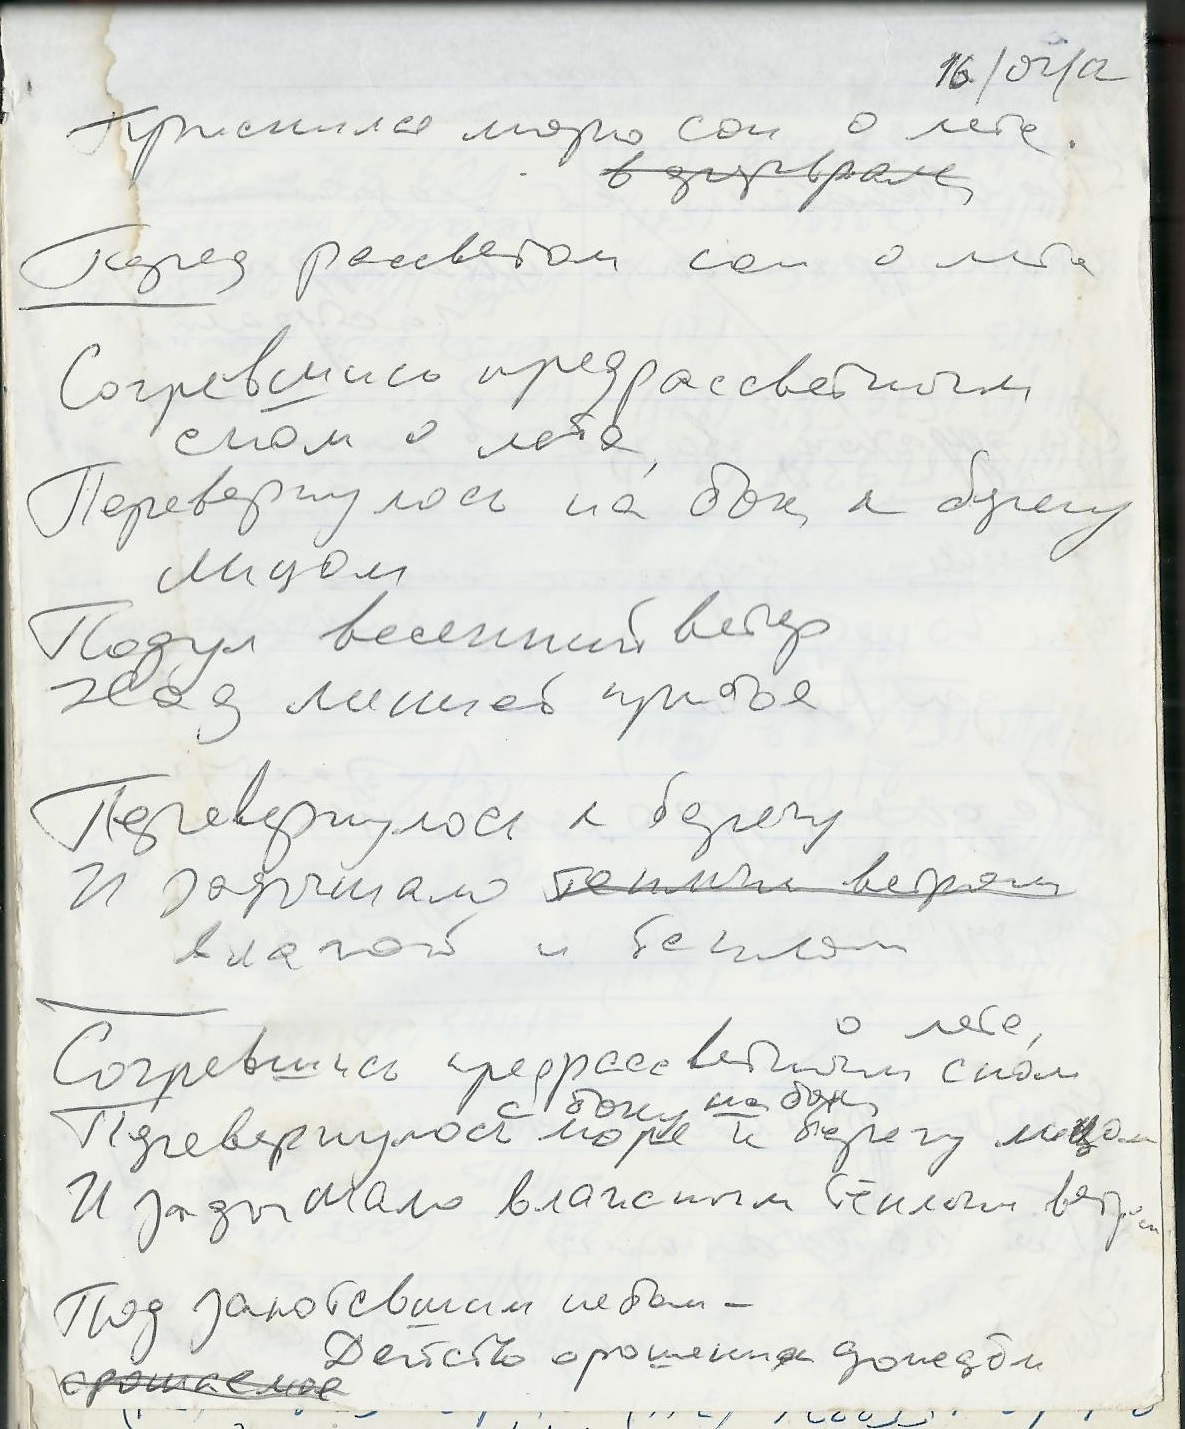 16/02/12
Приснился морю сон о лете.
в феврале,
Перед рассветом сон о лете
Согревшись предрассветным
сном о лете,
Перевернулось на бок к берегу
лицом
Подул весенний ветер
Над линией прибоя
Перевернулось к берегу
И задышало теплым ветром
влагой и теплом
о лете,
Согревшись предрассветным сном
с боку на бок,
Перевернулось море к берегу лицом
И задышало влажным тёплым ветром
Под запотевшим небом –
Детство орошения дождём
орошаемое